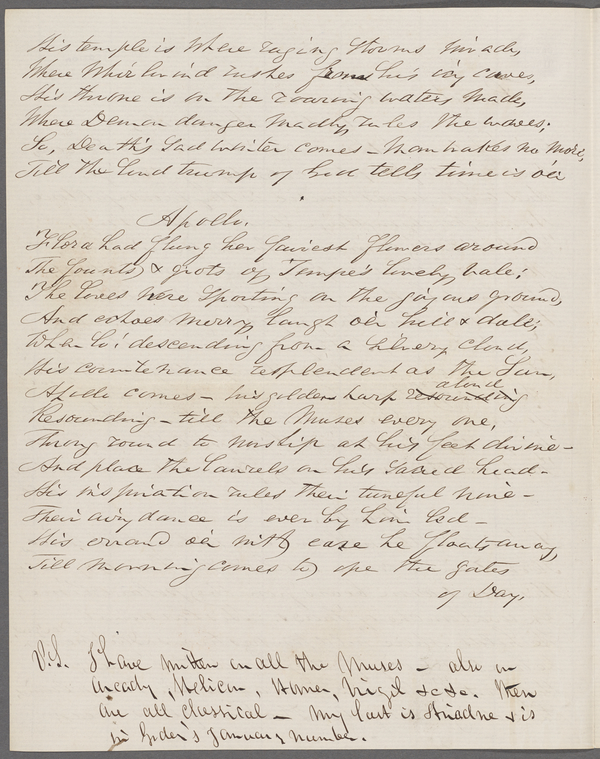 His temple is where raging storms invade,
Where Whirlwind rushes from his icy caves,
His throne is on the roaring waters made,
Where Demon danger madly rules the waves;
So, Death's sad winter comes - Man wakes no more,
Till the loud trump of God tells time is o'er
Apollo.
Flora had flung her fairest flowers around
The founts & grots of Tempe's lovely vale;
The Loves were sporting on the joyous ground,
And echoes merry laugh o'er hill & dale;
When lo! descending from a silvery cloud,
His countenance resplendent as the Sun,
Apollo comes - his golden harp resounding aloud
Resounding - till the Muses every one,
Throng round to worship at his feet divine -
And place the laurels on his sacred head -
His inspiration rules their tuneful nine -
Their airy dance is ever by him led -
His errand o'er with ease he floats away,
Till Morning comes to ope the gates
of Day.
P.S. I have written on all the Muses - also on
Arcady, Helicon, Homer, Virgil &c &c. They
are all classical - My last is Ariadne & is
in Godey's January number.